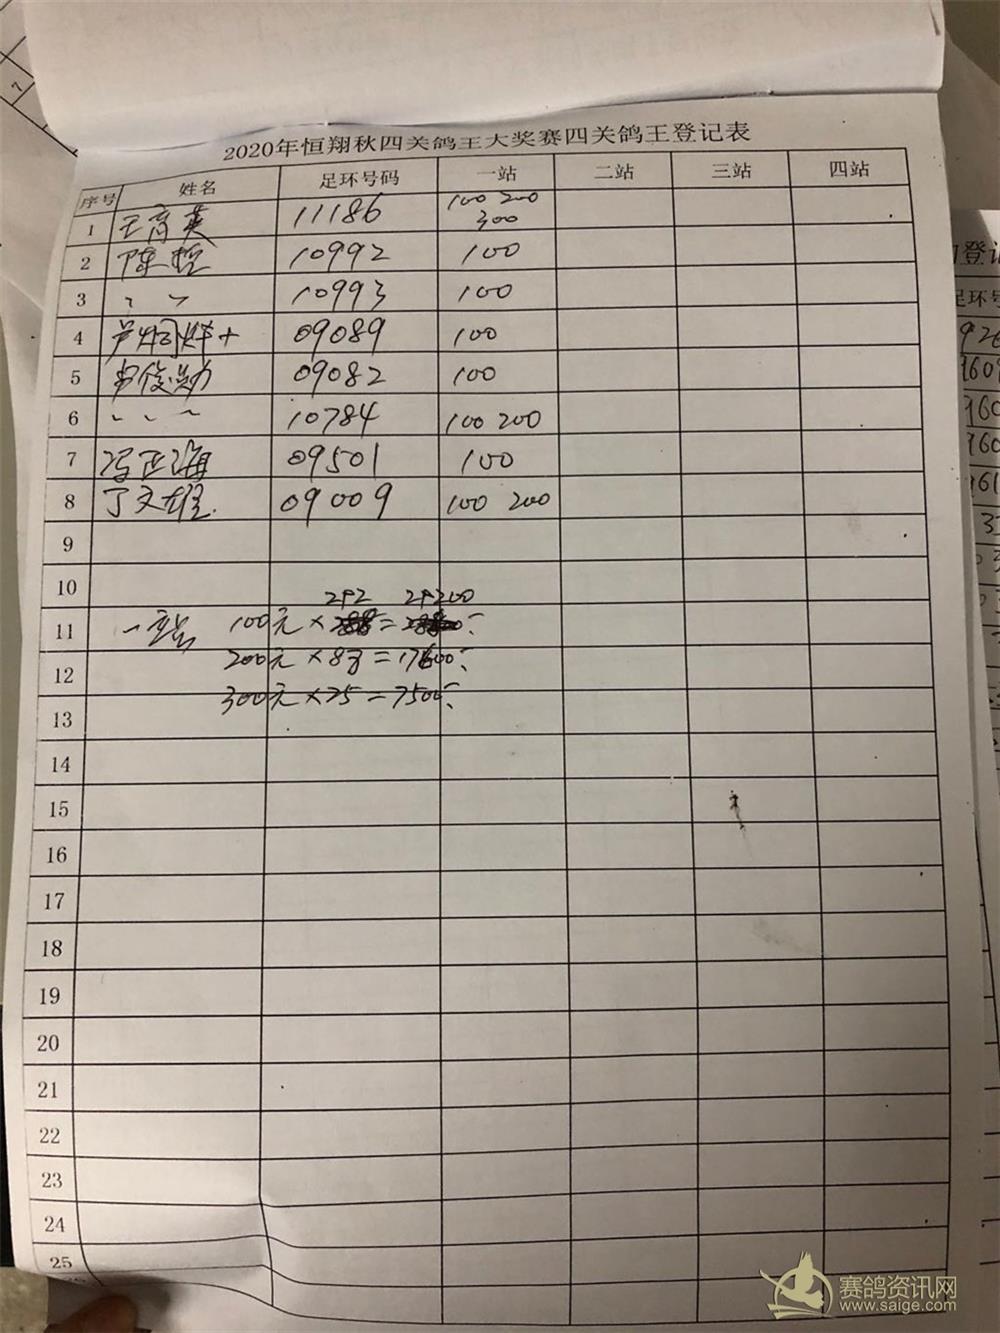 2020年恒翔秋四关鸽王大奖赛四关鸽王登记表
序号 姓名 足环号码 一站 二站 三站 四站
1 王育英 11186 100 200 300
2 陈 10992 100
3 〃 〃 10993 100
4 10 09089 100
5 俊勋 09082 100
6 〃 〃 〃 10784 100 200
7 冯正海 09501 100
8 丁文雄 09009 100 200
9
10
292 29200
11 一站 100元×288=28800
12 200元×88=17600
13 300元×25=7500
14
15
16
17
18
19
20
21
22
23
24
25
7
登记
足环号
赛鸽资讯网
www.saige.com